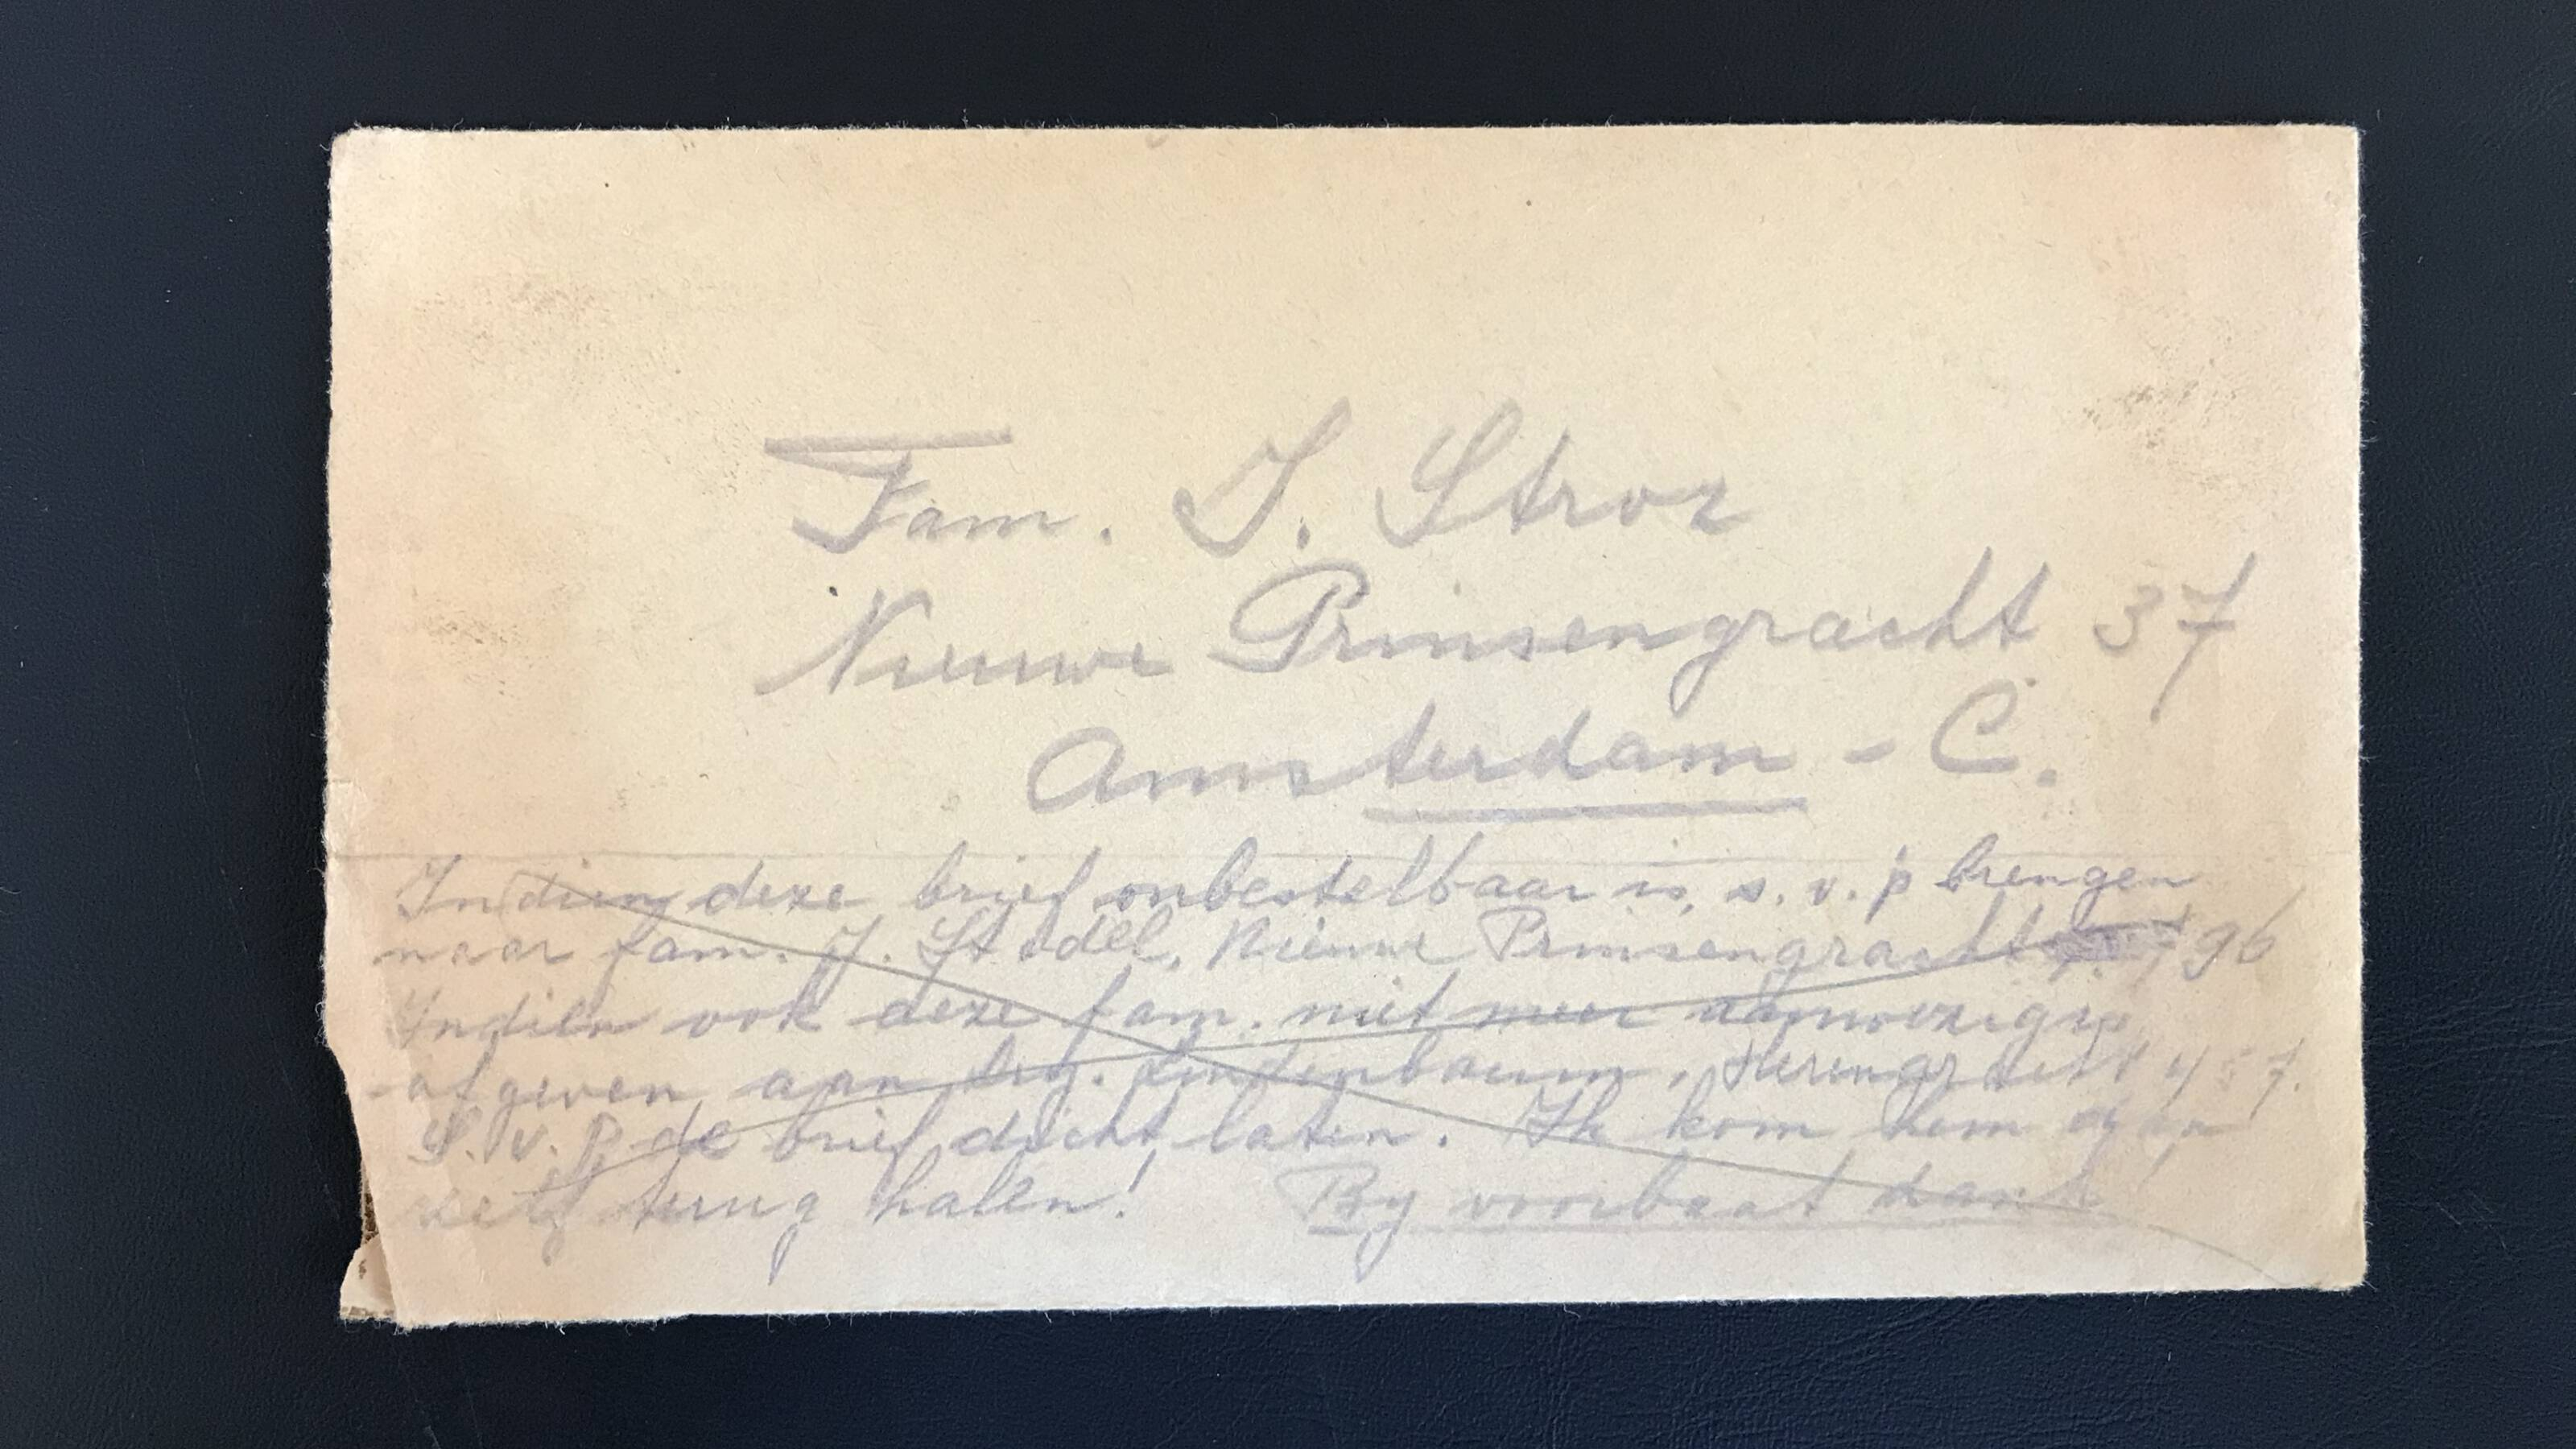 Fam. J. Stroz
Nieuwe Prinsengracht 37
Amsterdam - C.
Indien deze brief onbestelbaar is, s. v. p brengen
naar fam. J. Stodel, Nieuwe Prinsengracht 96
Indien ook deze fam. niet meer aanwezig is
afgeven aan Lindenbaum, Herengracht 457.
S. v. P. de brief dicht laten. Ik kom hem dan
zelf terug halen! By voorbaat dank!